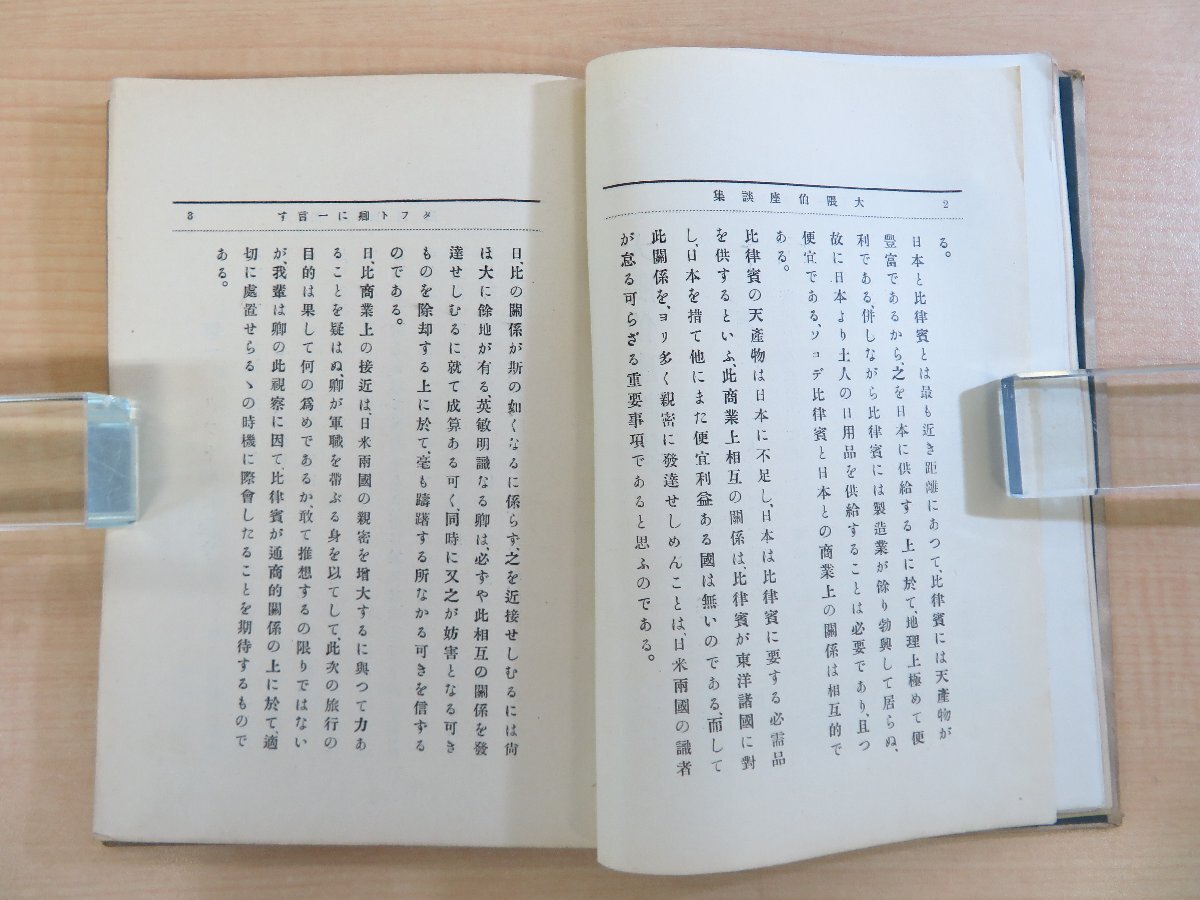 2
大隈伯座談集
る。
日本と比律賓とは最も近き距離にあつて、比律賓には天產物が
豐富であるから、之を日本に供給する上に於て、地理上極めて便
利である、併しながら比律賓には製造業が餘り勃興して居らぬ、
故に日本より土人の日用品を供給することは必要であり、且つ
便宜である、ソコデ比律賓と日本との商業上の關係は相互的で
ある。
比律賓の天產物は日本に不足し、日本は比律賓に要する必需品
を供するといふ、此商業上相互の關係は、比律賓が東洋諸國に對
し、日本を措て他にまた便宜利益ある國は無いのである、而して
此關係を、ヨリ多く親密に發達せしめんことは、日米兩國の識者
が怠る可らざる重要事項であると思ふのである。
タフト卿に一言す
3
日、比の關係が斯の如くなるに係らず、之を近接せしむるには尙
ほ大に餘地が有る、英敏明識なる卿は、必ずや此相互の關係を發
達せしむるに就て成算ある可く、同時に又之が妨害となる可き
ものを除却する上に於て、毫も躊躇する所なかる可きを信ずる
のである。
日、比商業上の接近は、日米兩國の親密を增大するに與つて力あ
ることを疑はぬ、卿が軍職を帶ぶる身を以てして、此次の旅行の
目的は果して何の爲めであるか、敢て推想するの限りではない
が、我輩は卿の此視察に因て、比律賓が通商的關係の上に於て、適
切に處置せらるゝの時機に際會したることを期待するもので
ある。